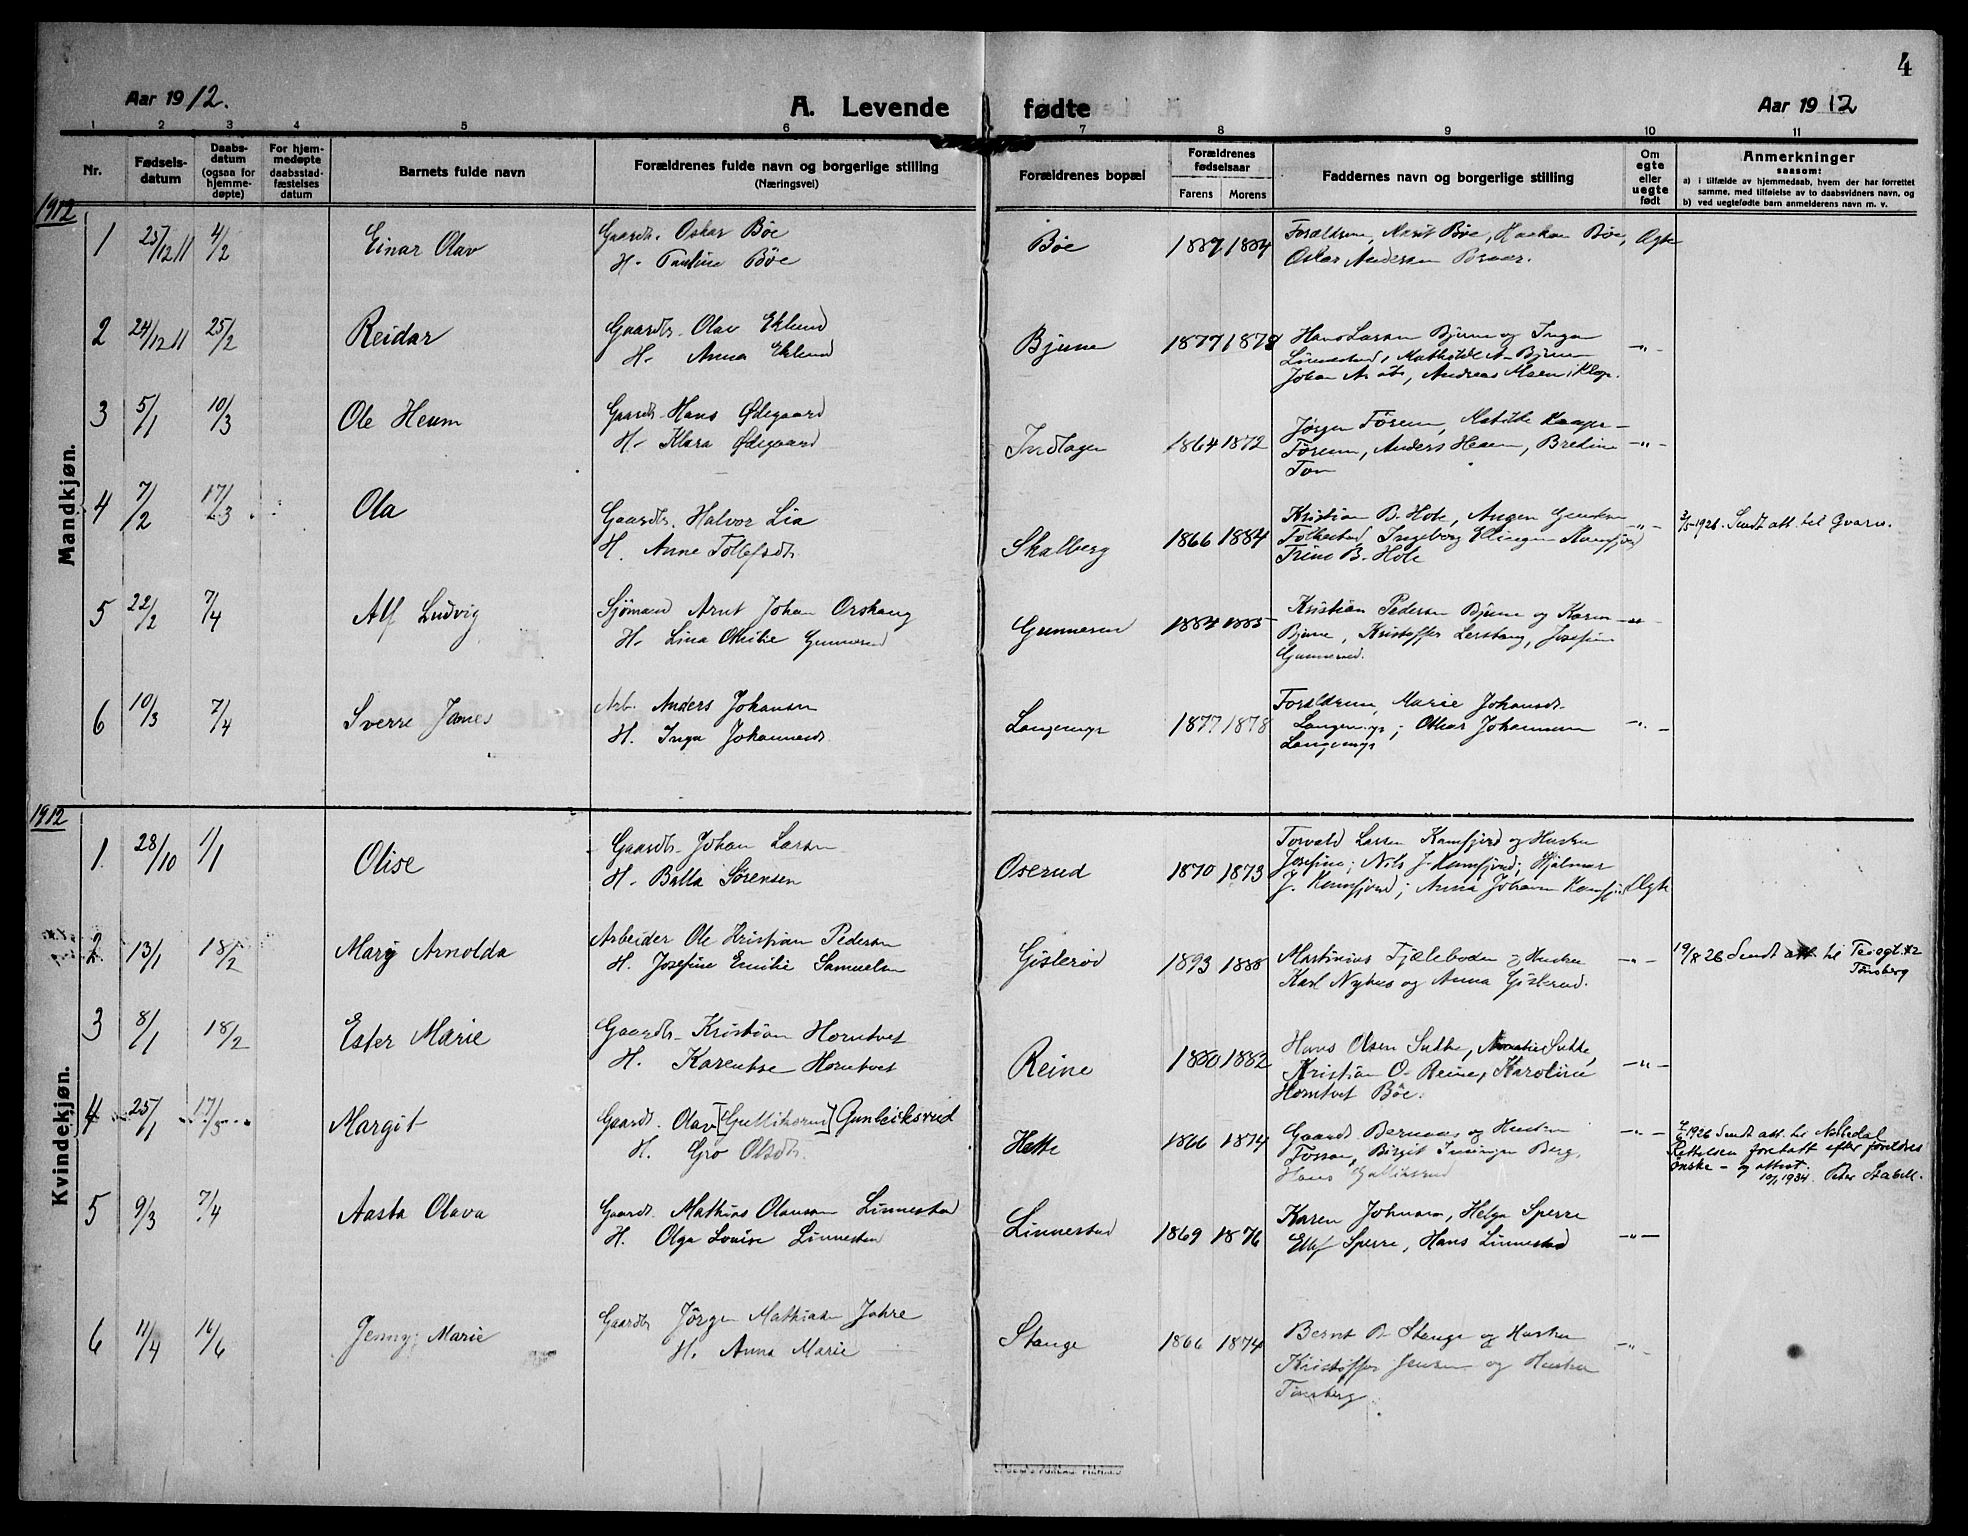 4
Aar 1912.
A. Levende fødte
Aar 1912
1 2 3 4 5 6 7 8 9 10 11
Nr.
Fødsels-
datum
Daabs-
datum
(ogsaa for
hjemme-
døpte)
For hjem-
medøpte
daabsstad-
fæstelses
datum
Barnets fulde navn
Forældrenes fulde navn og borgerlige stilling
(Næringsvei)
Forældrenes bopæl
Forældrenes
fødselsaar
Farens Morens
Faddernes navn og borgerlige stilling
Om
egte
eller
uegte
født
Anmerkninger
saasom:
a) i tilfælde av hjemmedaab, hvem der har forrettet
samme, med tilføielse av to daabsvidners navn, og
b) ved uegtefødte barn anmelderens navn m. v.
1912
Mandkjøn.
1 25/12 11 4/2 Einar Olav Gaardb. Oskar Bøe
H. Pauline Bøe
Bøe 1889 1884 Forældrene, Marit Bøe, Haakon Bøe, Egte
Oskar Andersen
2 24/12 11 25/2 Reidar Gaardb. Olav Eklund
H. Anna Eklund
Bjune 1877 1878 Hans Larsen Bjune og Inga
Linnestad, Mathilde A. Bjune -"-
Johan A. , Andreas Moen i Klop.
3 5/1 10/3 Ole Heum Gaardb. Hans Ødegaard
H. Klara Ødegaard
Indlagen 1864 1872 Jørgen Føreum, Matilde
Føreum, Anders Heum, Bredine -"-
Ton
4 7/2 17/3 Ola Gaardb. Halvor Lia
H. Anne Tollefsdt.
Skalberg 1866 1884 Kristian B. Hote, Aagen
Folkestad, Ingeborg Ellingsen Ramfjord -"-
Trine B. Hote
2/5-1926. Sendt att. til Gvarv.
5 22/2 7/4 Alf Ludvig Sjømand Arnt Johan Orskaug
H. Lina Otilie Gunnerud
Gunnerud 1884 1885 Kristian Pedersen Bjune og Karen -"-
Bjune, Kristoffer Lerskaug, Josefine
Gunnerud.
6 10/3 7/4 Sverre James Arb. Anders Johansen
H. Inga Johannesdt.
Langemyr 1877 1878 Forældrene, Marie Johansdt.
Langemyr; Oskar Johannesen -"-
Langemyr
1912
Kvindekjøn.
1 28/10 1/1 Olise Gaardb. Johan Larsen
H. Balla Sørensen
Oserud 1870 1873 Torvald Larsen Kamfjord og Hustru
Josefine; Nils J. Kamfjord; Hjalmar
J. Kamfjord; Anna Johansen Kamfj. Egte
2 13/1 18/2 Mary Arnolda Arbeider Ole Kristian Pedersen
H. Josefine Emilie Samuelsen
Gislerød 1893 1888 Martinius Fjæleboden og Hustru -"-
Karl Nyhus og Anna Gislerud.
19/8 26 Sendt att. til 42
Tønsberg
3 8/1 18/2 Ester Marie Gaardb. Kristian Horntvet
H. Karentse Horntvet
Reine 1880 1882 Hans Olsen Sutke, Sutke,
Kristian O. Reine, Karoline -"-
Horntvet Bøe.
4 25/1 17/3 Margit Gaardb. Olav [Gullikserud] Gunleiksrud
H. Gro Olsdt.
Hette 1866 1874 Gaardb. og Hustru -"-
Fossan, Birgit Berg,
Hans Gulliksrud
7/6 1926 Sendt att. til
Rettelsen foretatt efter foreldres
ønske - og attest.
10/1 1934. Peter Stabell.
5 9/3 7/4 Aasta Olava Gaardb. Mathias Olausen Linnestad
H. Olga Lovise Linnestad
Linnestad 1869 1876 Karen Johnsen, Helga Sperre
Ellef Sperre, Hans Linnestad -"-
6 11/4 16/6 Jenny Marie Gaardb. Jörgen Mathias Jahre
H. Anna Marie
Stange 1866 1874 Bernt B. Stange og Hustru -"-
Kristoffer Jensen og Hustru
Tønsberg